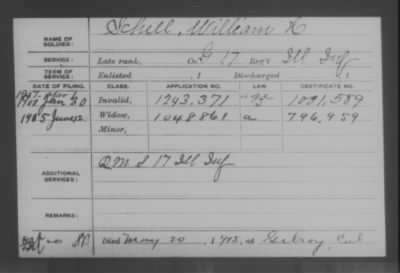 NAME OF SOLDIER: Schell, William H
SERVICE: Late rank, Co. G 17 Reg't Ill Inf
TERM OF SERVICE: Enlisted , 1 Discharged , 1
DATE OF FILING. CLASS. APPLICATION NO. LAW. CERTIFICATE NO.
Jan 30 Invalid, 1293,371 1001,589
June 2 Widow, 1048861 a 796,959
Minor,
ADDITIONAL SERVICES: Q M S 17 Ill Inf
REMARKS:
Died May 20, 19 , at Gilroy, Cal